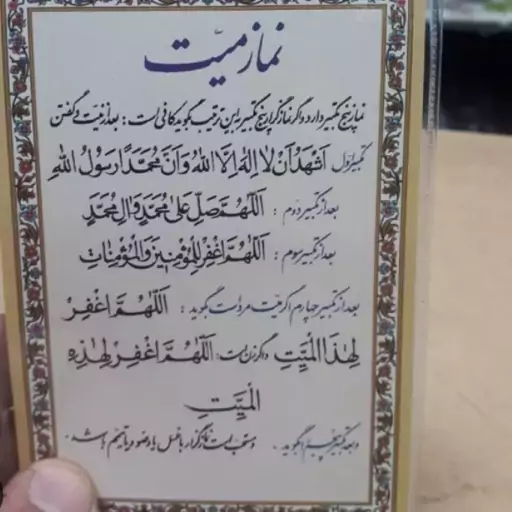 نماز میّت
نماز پنج تکبیر دارد و اگر نمازگزار پنج تکبیر به این ترتیب بگوید کافی است : بعد از نیّت و گفتن
تکبیر اول اَشْهَدُ اَنْ لا اِلٰهَ اِلَّا اللهُ وَ اَنَّ مُحَمَّدًا رَسُولُ اللهِ
بعد از تکبیر دوم : اَللّٰهُمَّ صَلِّ عَلیٰ مُحَمَّدٍ وَ الِ مُحَمَّدٍ
بعد از تکبیر سوم : اَللّٰهُمَّ اغْفِرْ لِلْمُؤْمِنِینَ وَ الْمُؤْمِناتِ
بعد از تکبیر چهارم اگر میّت مرد است بگوید : اَللّٰهُمَّ اغْفِرْ
لِهٰذَا الْمَیِّتِ و اگر زن است : اَللّٰهُمَّ اغْفِرْ لِهٰذِهِ
الْمَیِّتِ
و بعد تکبیر پنجم را بگوید . مستحب است نمازگزار با غسل یا وضو و یا تیمّم باشد .